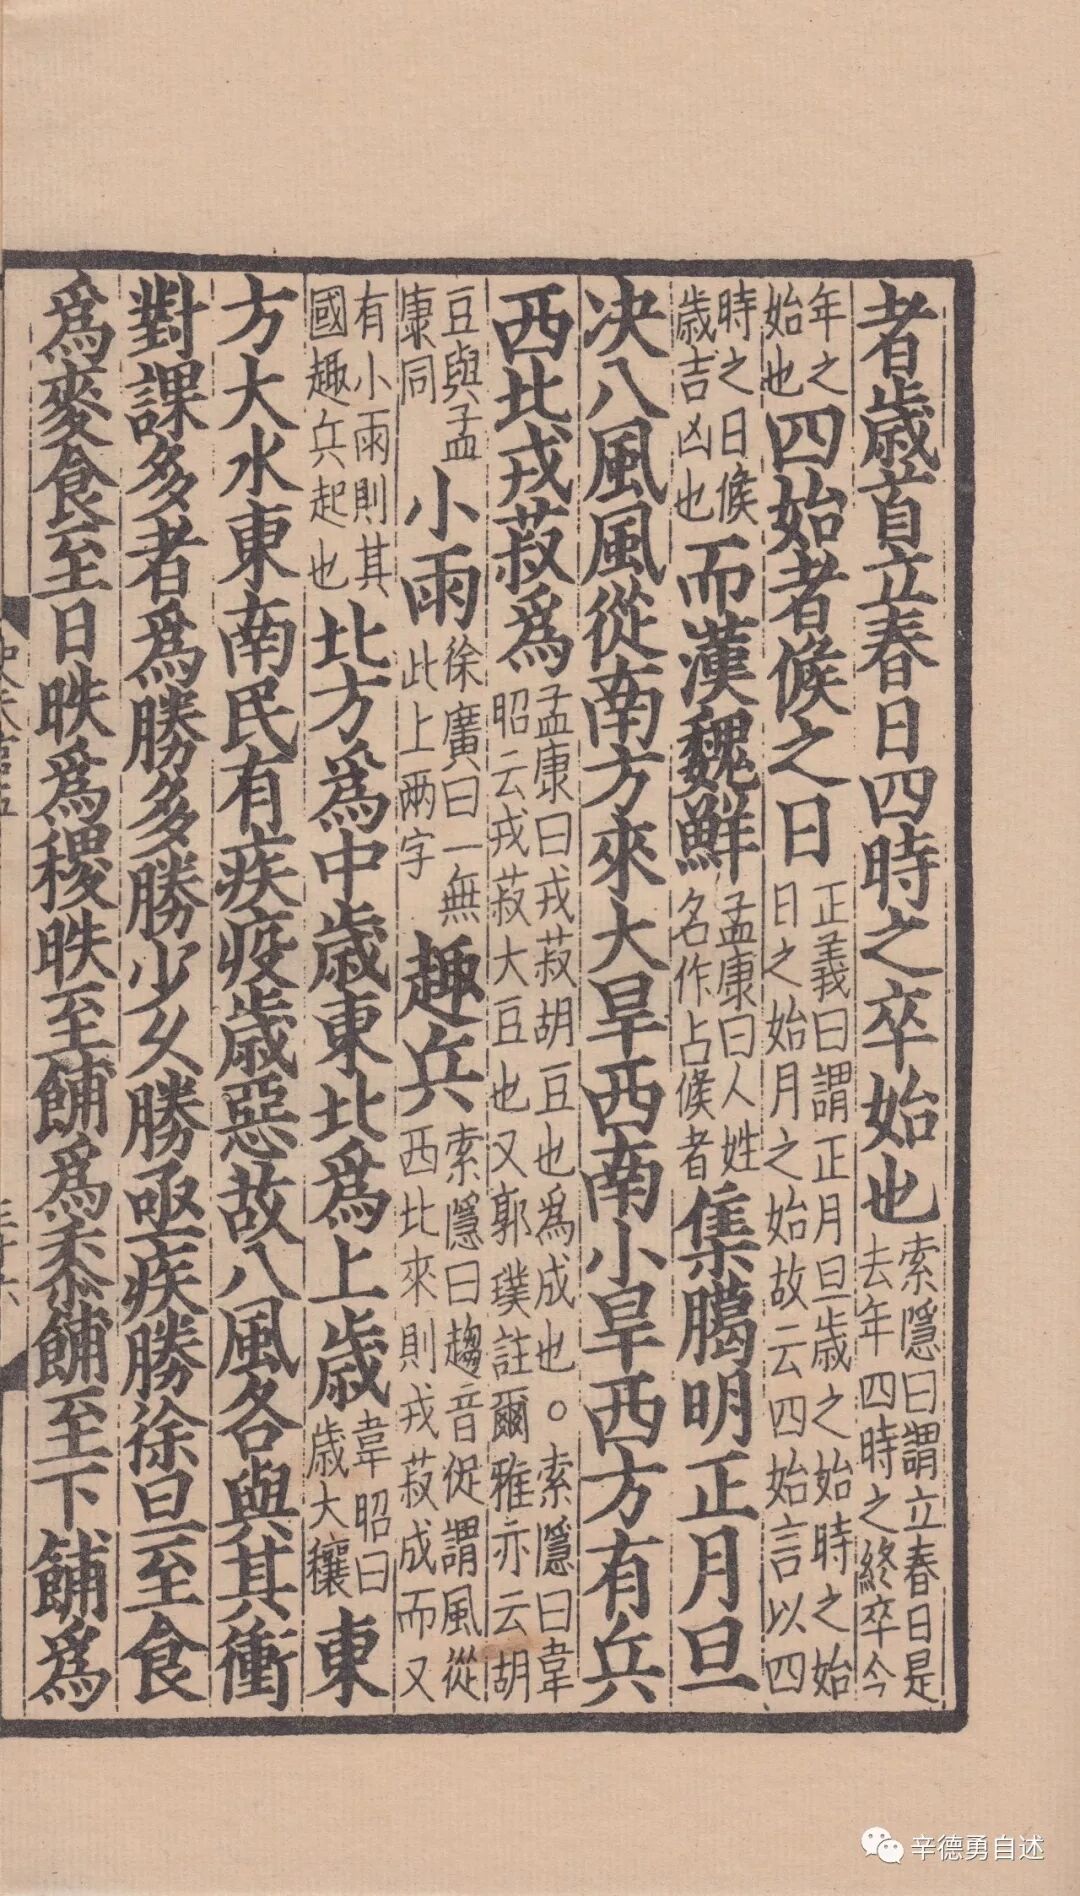 者歲首立春日四時之卒始也索隱曰謂立春日是去年四時之終卒今
年之始也四始者候之日正義曰謂正月旦歲之始時之始日之始月之始故云四始言以四
時之日候歲吉凶也而漢魏鮮孟康曰人姓名作占候者集臈明正月旦
决八風風從南方來大旱西南小旱西方有兵
西北戎菽爲孟康曰戎菽胡豆也爲成也。索隱曰韋昭云戎菽大豆也又郭璞註爾雅亦云胡
豆與孟康同小雨徐廣曰一無此上两字趣兵索隱曰趨音促謂風從西北來則戎菽成而又
有小雨則其國趣兵起也北方爲中歲東北爲上歲韋昭曰歲大穰東
方大水東南民有疾疫歲惡故八風各與其衝
對課多者爲勝多勝少久勝亟疾勝徐旦至食
爲麥食至日昳爲稷昳至餔爲黍餔至下餔爲
辛德勇自述